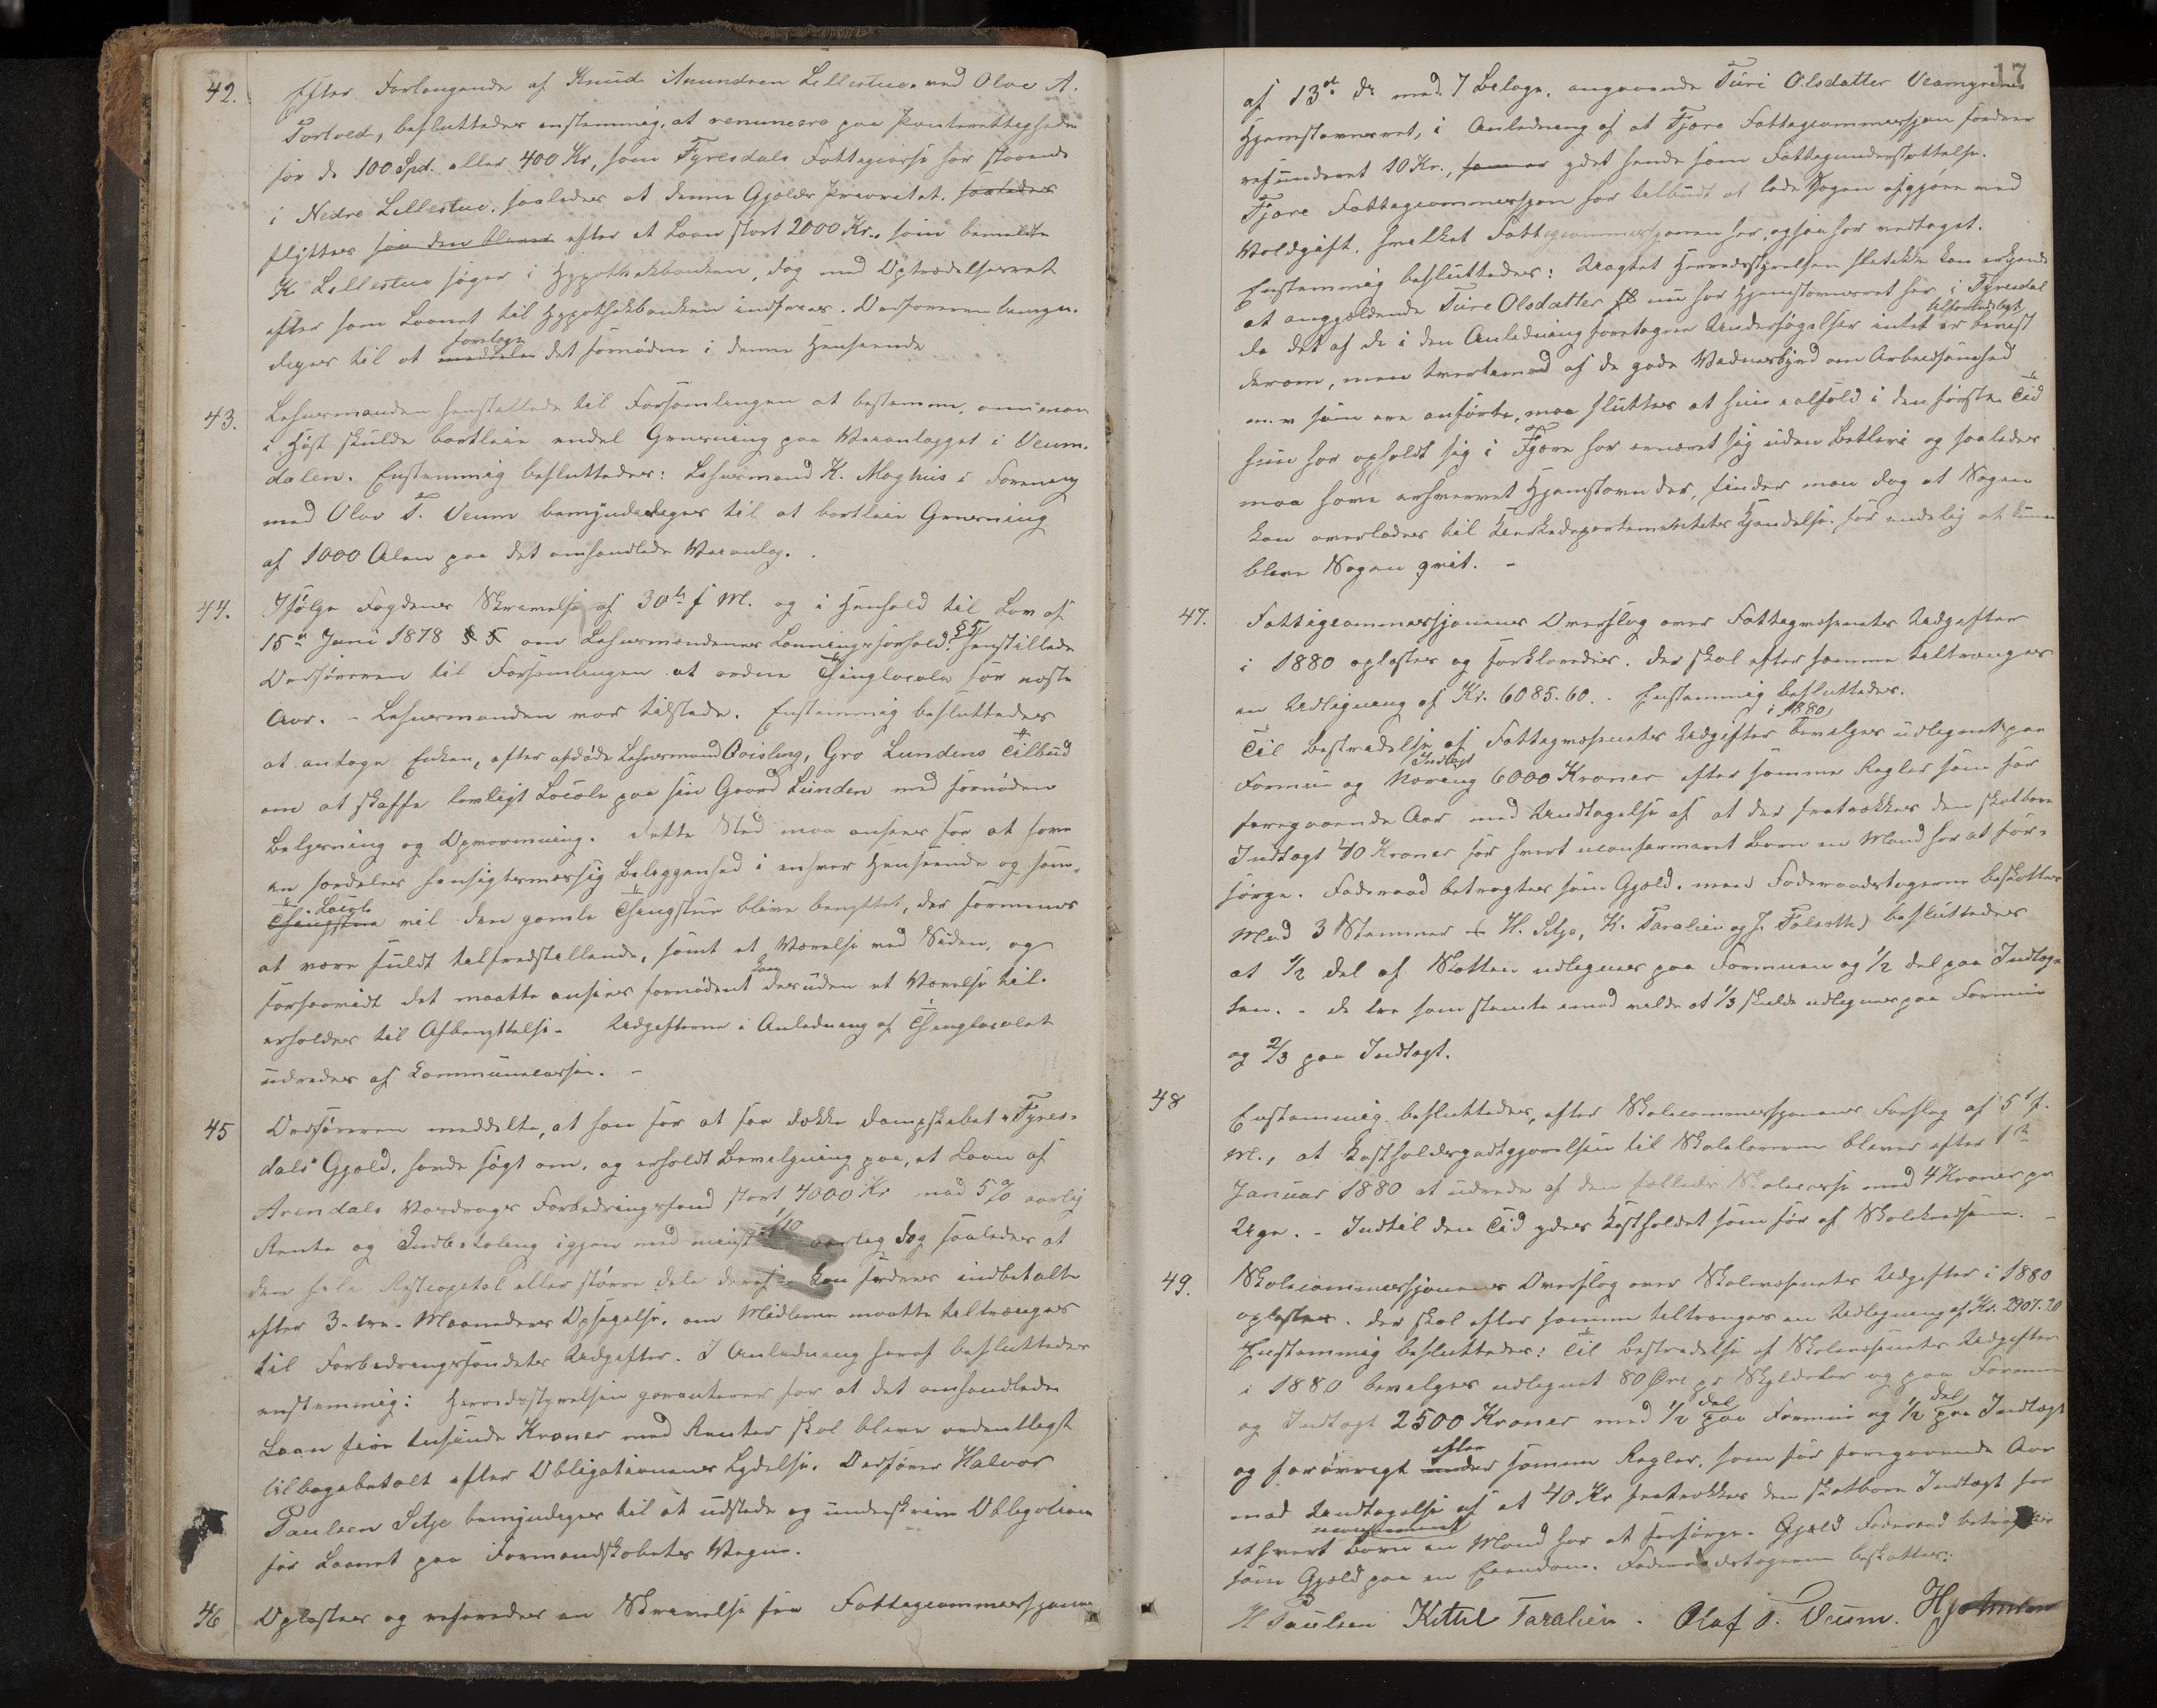 42. Efter Forlangende af Knud Amundsen Lillestue, ved Olav A.
Tortved, besluttedes enstemmig, at renuncere paa Panterettigheden
for de 100 Spd. eller 400 Kr, som Fyresdals Fattigcasse har staaende
i Nedre Lillestue, saaledes at denne Gjælds Prioritet saaledes
flyttes saa den bliver efter et Laan stort 2000 Kr., som bemeldte
K. Lillestue søger i Hypothekbanken, dog med Optrædelsesret
efter som Laanet til Hypothekbanken indfries. Ordføreren bemyn-
diges til at meddele foretage det fornødne i denne Henseende
43. Lensmanden henstillede til Forsamlingen at bestemme, om man
i Høst skulde bortleie endel Grusning paa Veianlægget i Veum-
dalen. Enstemmig besluttedes: Lensmand K. Moghus i Forening
med Olav T. Veum bemyndediges til at bortleie Grusning
af 1000 Alen paa det omhandlede Veianlæg.
44. Ifølge Fogdens Skrivelse af 30te f. M. og i Henhold til Lov af
15de Juni 1878 § 5 om Lensmændenes Lønningsforhold § 5, henstillede
Ordføreren til Forsamlingen at ordne Thinglocale for næste
Aar. - Lensmanden var tilstede. Enstemmig besluttedes
at antage Enken, efter afdøde Lensmand Qvisling, Gro Lundens Tilbud
om at skaffe lovligt Locale paa sin Gaard Lunden med fornøden
Belysning og Opvarmning. Dette Sted maa ansees for at have
en særdeles hensigtsmæssig Beliggenhed i enhver Henseende og som
Thingstue Local vil den gamle Thingstue blive benyttet, der formenes
at være fuldt tilfredsstillende, samt et Værelse ved Siden, og
forsaavidt det maatte ansees fornødent kan desuden et Værelse til.
erholdes til Afbenyttelse. Udgifterne i Anledning af Thinglocalet
udredes af Communecassen. -
45 Ordføreren meddelte, at han for at faa dække Dampskibet "Fyres-
dals" Gjæld, havde søgt om, og erholdt Bevilgning paa, et Laan af
Arendals Vasdrags Forbedringsfond stort 4000 Kr mod 5 % aarlig
Rente og Indbetaling igjen med mindst 1/10 aarlig dog saaledes at
den hele Restcapital eller større Dele deraf kan fordres indbetalte
efter 3 - tre - Maaneders Opsigelse, om Midlerne maatte tiltrænges
til Forbedringsfondets Udgifter. I Anledning heraf besluttedes
enstemmig: Herredsstyrelsen garanterer for at det omhandlede
Laan fire tusinde Kroner med Renter skal blive ordentligst
tilbagebetalt efter Obligationens Lydelse. Ordfører Halvor
Paulsen Sitje bemyndiges til at udstede og underskrive Obligation
for Laanet paa Formandskabets Vegne.
46 Oplæstes og refereredes en Skrivelse fra Fattigcommissionen
17
af 13de ds med 7 Bilage, angaaende Turi Olsdatter Veamyrenes
Hjemstavnsret, i Anledning af at Fjære Fattigcommission fordrer
refunderet 10 Kr., som er ydet hende som Fattigunderstøttelse.
Fjære Fattigcommission har tilbudt at lade Sagen afgjøre ved
Voldgift, hvilket Fattigcommissionen her ogsaa har vedtaget.
Enstemmig besluttedes: Uagtet Herredsstyrelsen slet ikke kan erkjende
at angjældende Ture Olsdatter nu har Hjemstavnsret her i Fyresdal
da det af de i den Anledning foretagne Undersøgelser intet tilforladeligt er bevist
derom, men tvertimod af de gode Vidnesbyrd om Arbeidsomhed
m. v som ere anførte, maa sluttes at hun ialfald i den første Tid
hun har opholdt sig i Fjære har ernæret sig uden Betleri og saaledes
maa have erhvervet Hjemstavn der, finder man dog at Sagen
kan overlades til Kirkedepartementets Kjendelse for endelig at kunne
blive Sagen qvit. -
47. Fattigcommissionens Overslag over Fattigvæsenets Udgifter
i 1880 oplæstes og forklaredes. Der skal efter samme tiltrænges
en Udligning af Kr. 6085.60. Enstemmig besluttedes.
Til Bestridelse af Fattigvæsenets Udgifter i 1880 bevilges udlignet paa
Formue og Indtægt Næring 6000 Kroner efter samme Regler som for
foregaaende Aar med Undtagelse af at der fratrækkes den skatbare
Indtægt 40 Kroner for hvert uconfirmeret Barn en Mand har at for-
sørge. Føderaad betragtes som Gjæld, men Føderaadstageren beskattes
Med 3 Stemmer (H. Sitje, K. Taralien og J. Folsæth) besluttedes
at 1/2 Del af Skatten udlignes paa Formuen og 1/2 Del paa Indtæg-
ten. - De tre som stemte imod vilde at 1/3 skulde udlignes paa Formue
og 2/3 paa Indtægt.
48 Enstemmig besluttedes, efter Skolecommissionens Forslag af 5te f.
M., at Kostholdsgodtgjørelsen til Skolelærerne bliver efter 1ste
Januar 1880 at udrede af den fælleds Skolecasse med 4 Kroner pr
Uge. - Indtil den Tid ydes Kostholdet som før af Skolekredsene. -
49. Skolecommissionens Overslag over Skolevæsenets Udgifter i 1880
oplæstes. Der skal efter samme tiltrænges en Udligning af Kr. 2907.20
Enstemmig besluttedes: Til Bestridelse af Skolevæsenets Udgifter
i 1880 bevilges udlignet 80 Øre pr Skylddaler og paa Formue
og Indtægt 2500 Kroner med 1/2 Del paa Formue og 1/2 Del paa Indtægt
og forøvrigt under efter samme Regler, som for foregaaende Aar
med Undtagelse af at 40 Kr fratrækkes den skatbare Indtægt for
ethvert uconfirmeret Barn en Mand har at forsørge. Gjæld Føderaad betragtes
som Gjæld paa en Eiendom. Føderaadstageren beskattes.
H Paulsen Kittil Taralien. Olaf T. Veum.